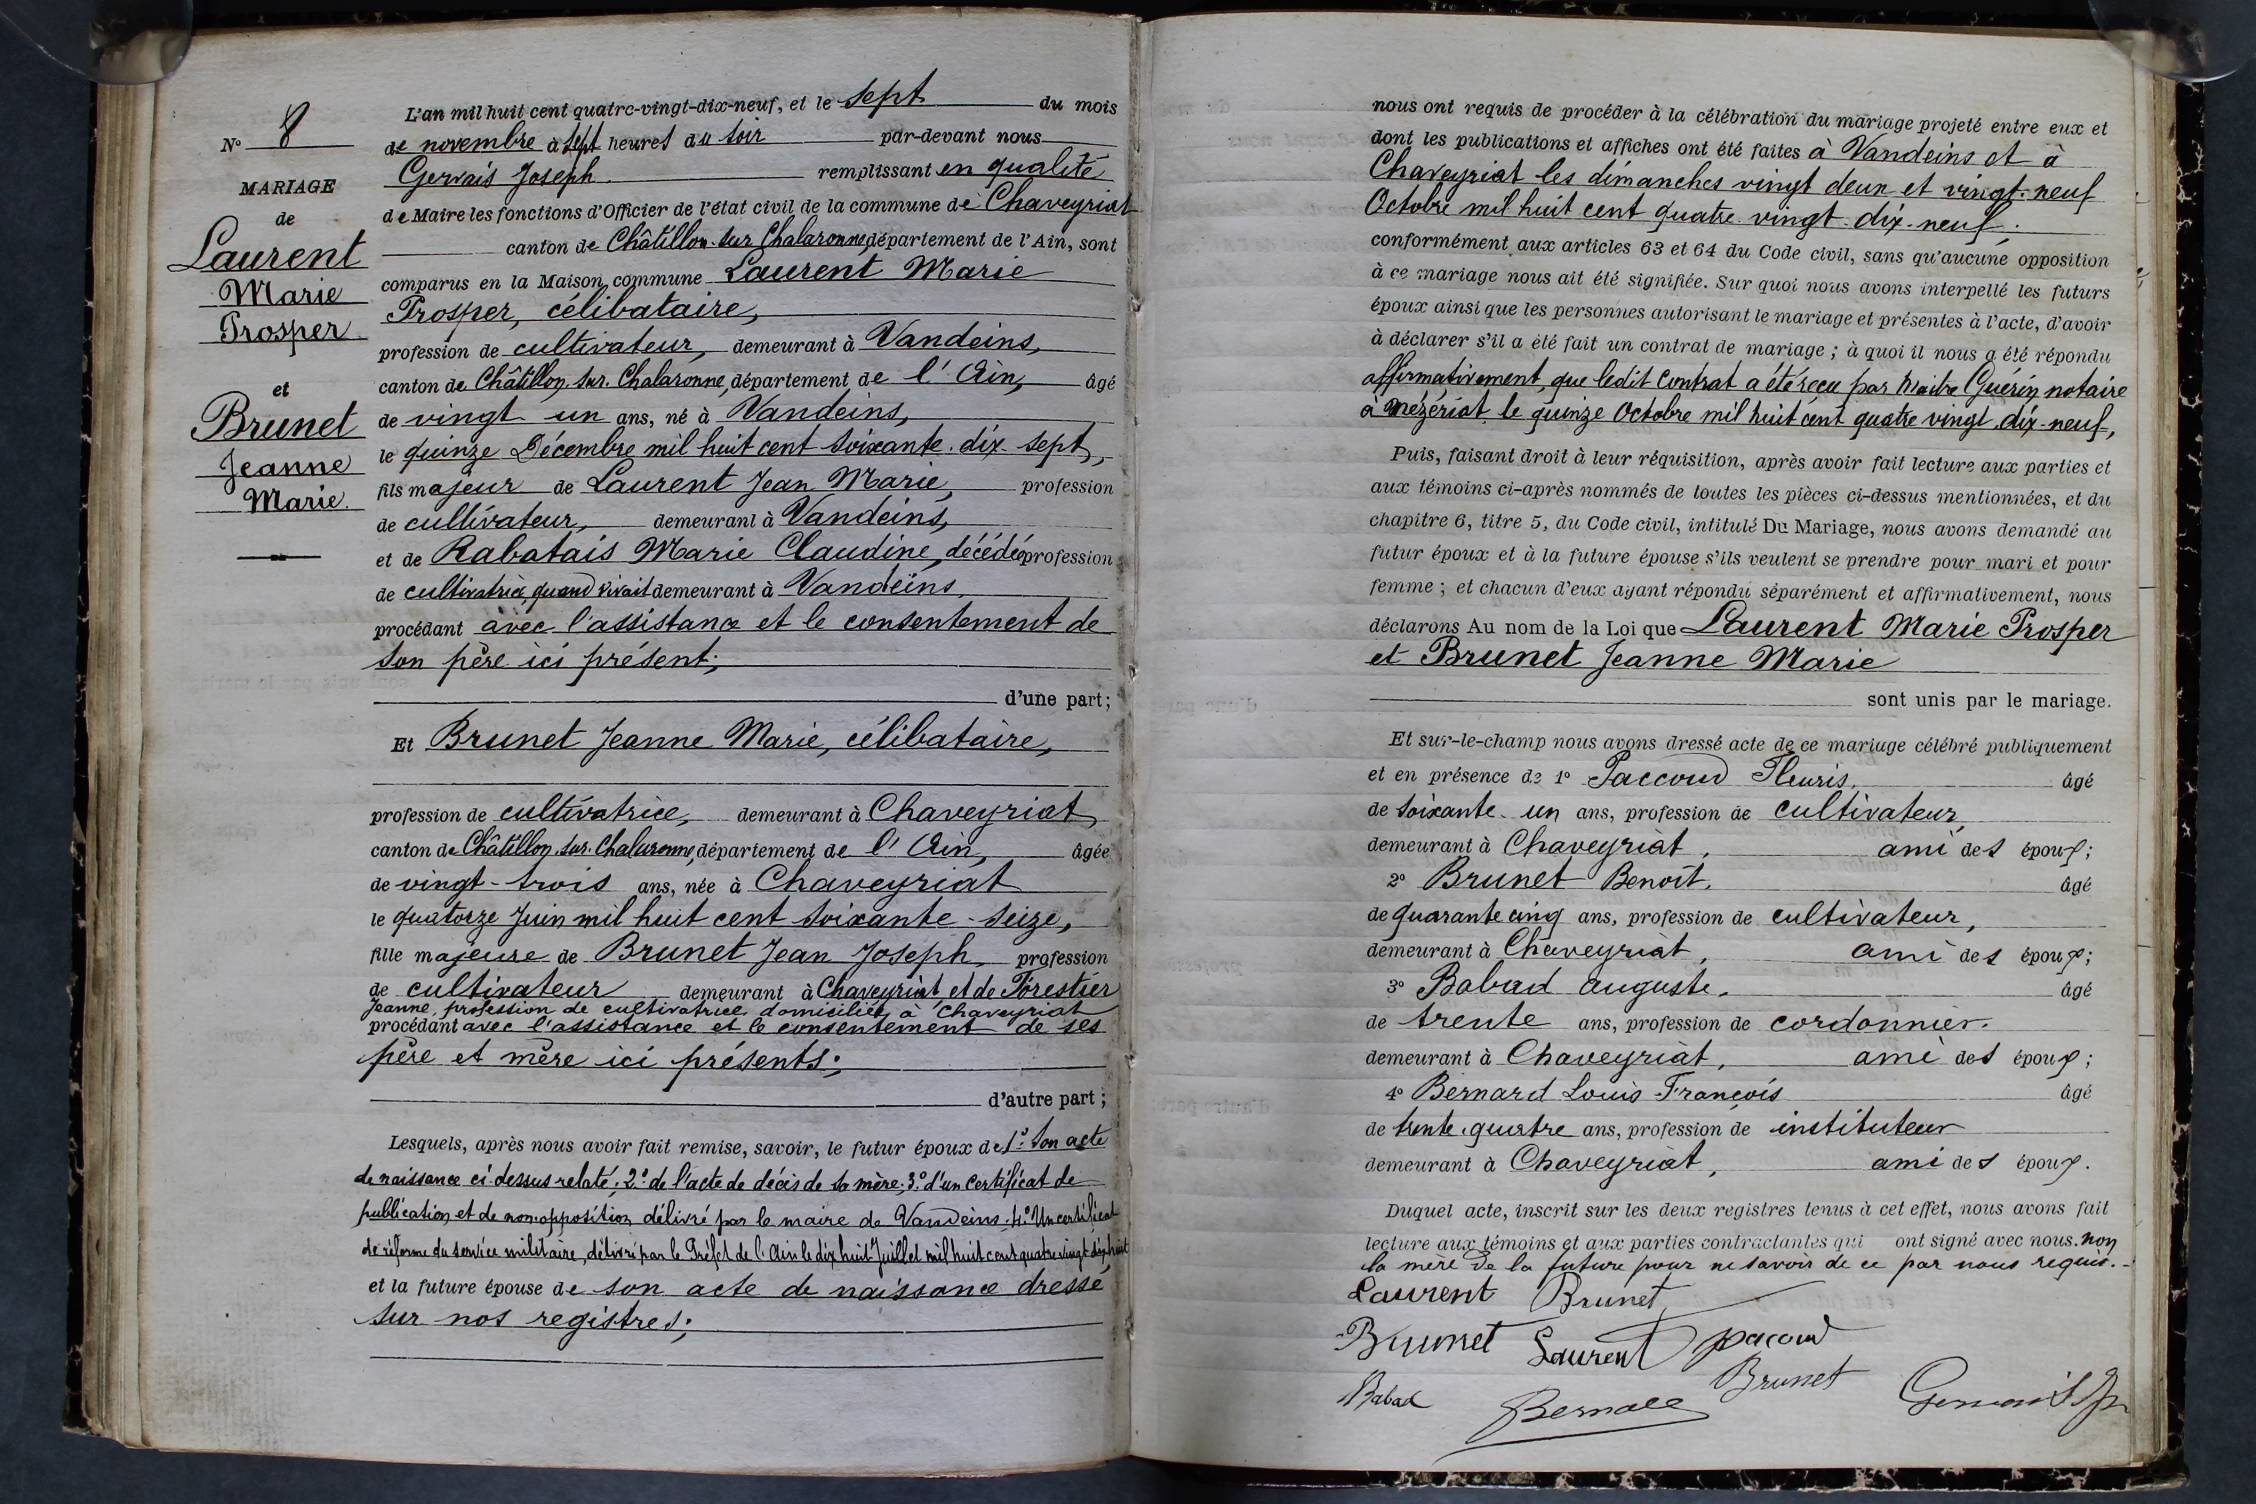 N° 8
MARIAGE
de
Laurent
Marie
Prosper
et
Brunet
Jeanne
Marie.
L'an mil huit cent quatre-vingt-dix-neuf, et le sept du mois
de novembre à sept heures du soir par-devant nous
Gervais Joseph. remplissant en qualité
de Maire les fonctions d'Officier de l'état civil de la commune de Chaveyriat
canton de Châtillon-sur Chalaronne, département de l'Ain, sont
comparus en la Maison commune Laurent Marie
Prosper, célibataire,
profession de cultivateur, demeurant à Vandeins,
canton de Châtillon-sur-Chalaronne, département de l'Ain, âgé
de vingt un ans, né à Vandeins,
le quinze Décembre mil huit cent soixante-dix-sept,
fils majeur de Laurent Jean Marie, profession
de cultivateur, demeurant à Vandeins,
et de Rabatais Marie Claudine, décédée profession
de cultivatrice, quand vivait demeurant à Vandeins,
procédant avec l'assistance et le consentement de
son père ici présent;
d'une part;
Et Brunet Jeanne Marie, célibataire,
profession de cultivatrice, demeurant à Chaveyriat
canton de Châtillon-sur-Chalaronne, département de l'Ain, âgée
de vingt-trois ans, née à Chaveyriat
le quatorze Juin mil huit cent soixante-seize,
fille majeure de Brunet Jean Joseph, profession
de cultivateur demeurant à Chaveyriat et de Forestier
Jeanne, profession de cultivatrice domiciliée à Chaveyriat
procédant avec l'assistance et le consentement de ses
père et mère ici présents;
d'autre part;
Lesquels, après nous avoir fait remise, savoir, le futur époux de 1° son acte
de naissance ci-dessus relaté; 2° de l'acte de décès de sa mère; 3° d'un certificat de
publication et de non-opposition délivré par le maire de Vandeins. 4° Un certificat
de réforme du service militaire, délivré par le Préfet de l'Ain le dix huit Juillet mil huit cent quatre vingt dix huit
et la future épouse de son acte de naissance dressé
sur nos registres;
nous ont requis de procéder à la célébration du mariage projeté entre eux et
dont les publications et affiches ont été faites à Vandeins et à
Chaveyriat les dimanches vingt deux et vingt-neuf
Octobre mil huit cent quatre-vingt-dix-neuf;
conformément aux articles 63 et 64 du Code civil, sans qu'aucune opposition
à ce mariage nous ait été signifiée. Sur quoi nous avons interpellé les futurs
époux ainsi que les personnes autorisant le mariage et présentes à l'acte, d'avoir
à déclarer s'il a été fait un contrat de mariage; à quoi il nous a été répondu
affirmativement, que ledit contrat a été reçu par Maître Guérin notaire
à Mézériat, le quinze Octobre mil huit cent quatre vingt-dix-neuf,
Puis, faisant droit à leur réquisition, après avoir fait lecture aux parties et
aux témoins ci-après nommés de toutes les pièces ci-dessus mentionnées, et du
chapitre 6, titre 5, du Code civil, intitulé Du Mariage, nous avons demandé au
futur époux et à la future épouse s'ils veulent se prendre pour mari et pour
femme; et chacun d'eux ayant répondu séparément et affirmativement, nous
déclarons Au nom de la Loi que Laurent Marie Prosper
et Brunet Jeanne Marie
sont unis par le mariage.
Et sur-le-champ nous avons dressé acte de ce mariage célébré publiquement
et en présence de 1° Paccoud Fleuris, âgé
de soixante-un ans, profession de cultivateur,
demeurant à Chaveyriat, ami des époux;
2° Brunet Benoît, âgé
de quarante cinq ans, profession de cultivateur,
demeurant à Chaveyriat, ami des époux;
3° Babad Auguste, âgé
de trente ans, profession de cordonnier.
demeurant à Chaveyriat, ami des époux;
4° Bernard Louis François âgé
de trente-quatre ans, profession de instituteur
demeurant à Chaveyriat, ami des époux.
Duquel acte, inscrit sur les deux registres tenus à cet effet, nous avons fait
lecture aux témoins et aux parties contractantes qui ont signé avec nous. non
la mère de la future pour ne savoir de ce par nous requis.
Laurent Brunet
Brunet Laurent Paccoud
Brunet
Babad Bernard Gervais J